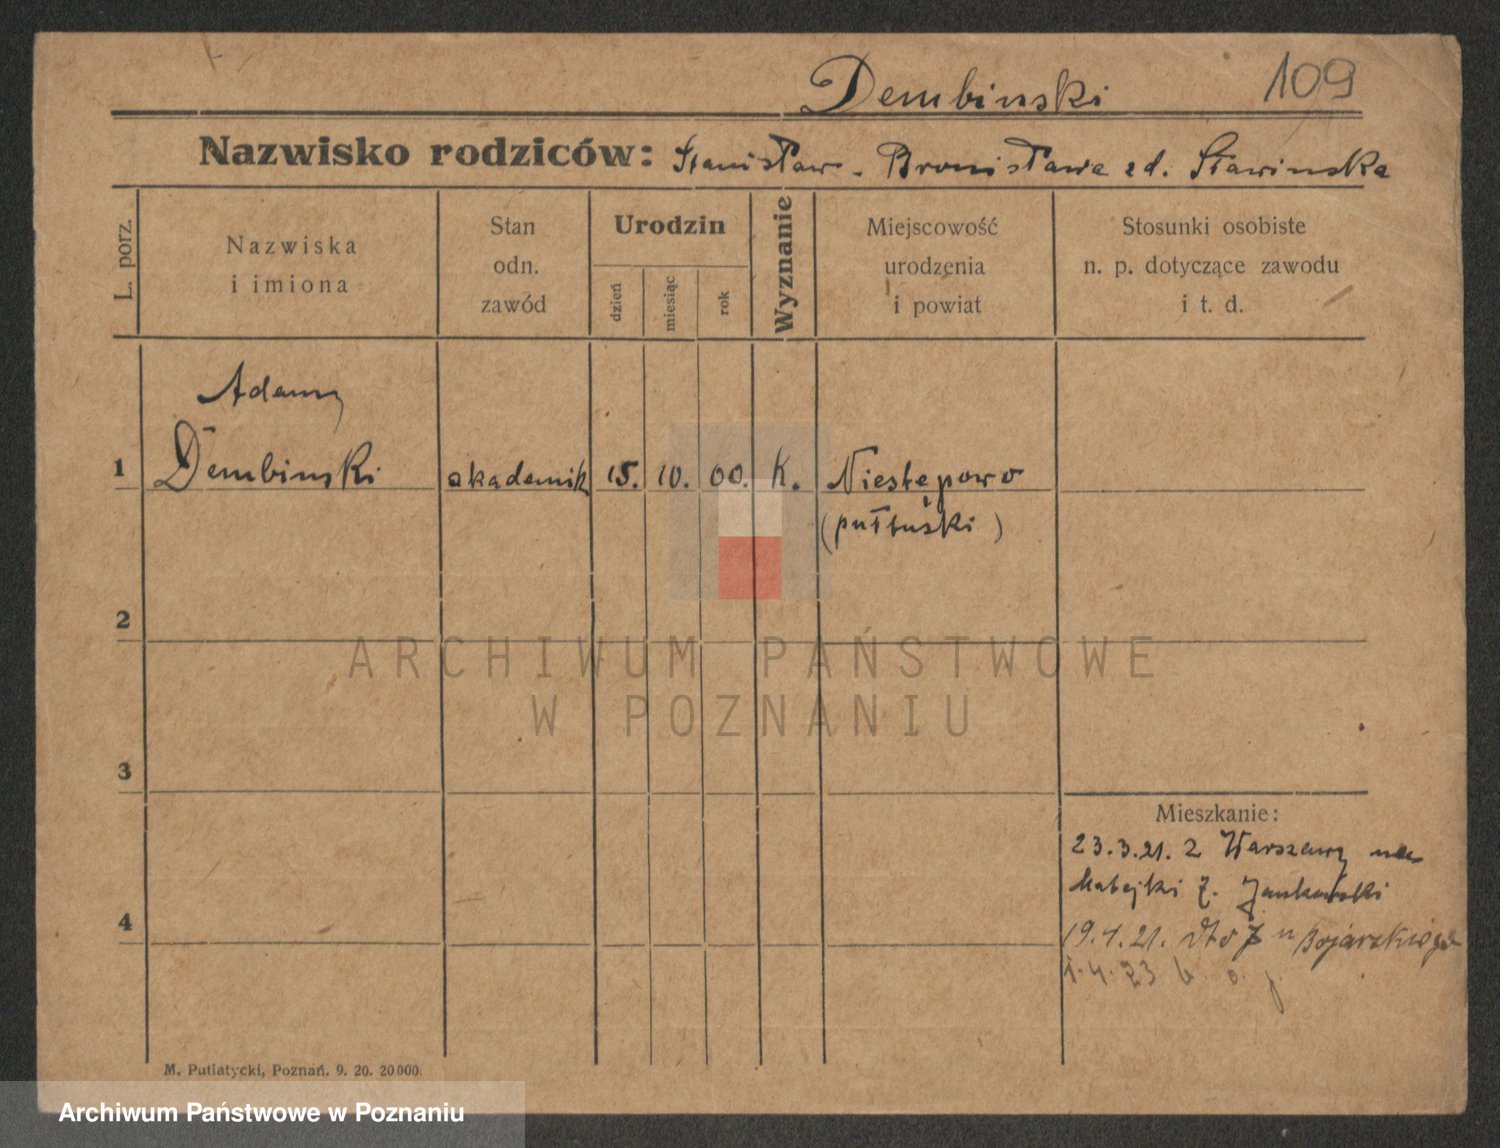 Dembinski 109
Nazwisko rodziców: Stanisław. Bronisława zd. Sławinska
L. porz.
Nazwiska
i imiona
Stan
odn.
zawód
Urodzin
dzień
miesiąc
rok
Wyznanie
Miejscowość
urodzenia
i powiat
Stosunki osobiste
n. p. dotyczące zawodu
i t. d.
Adam
1 Dembinski akademik 15. 10. 00. K. Niestępowo
(pułtuski)
2
3
4
Mieszkanie:
23.3.21. z Warszawy na
Matejki 7. Jankowski
19.4.21. dto 7 u Bojarskiego
1.4.23 b. o. j.
M. Putiatycki, Poznań. 9. 20. 20000.
ARCHIWUM PAŃSTWOWE
W POZNANIU
Archiwum Państwowe w Poznaniu